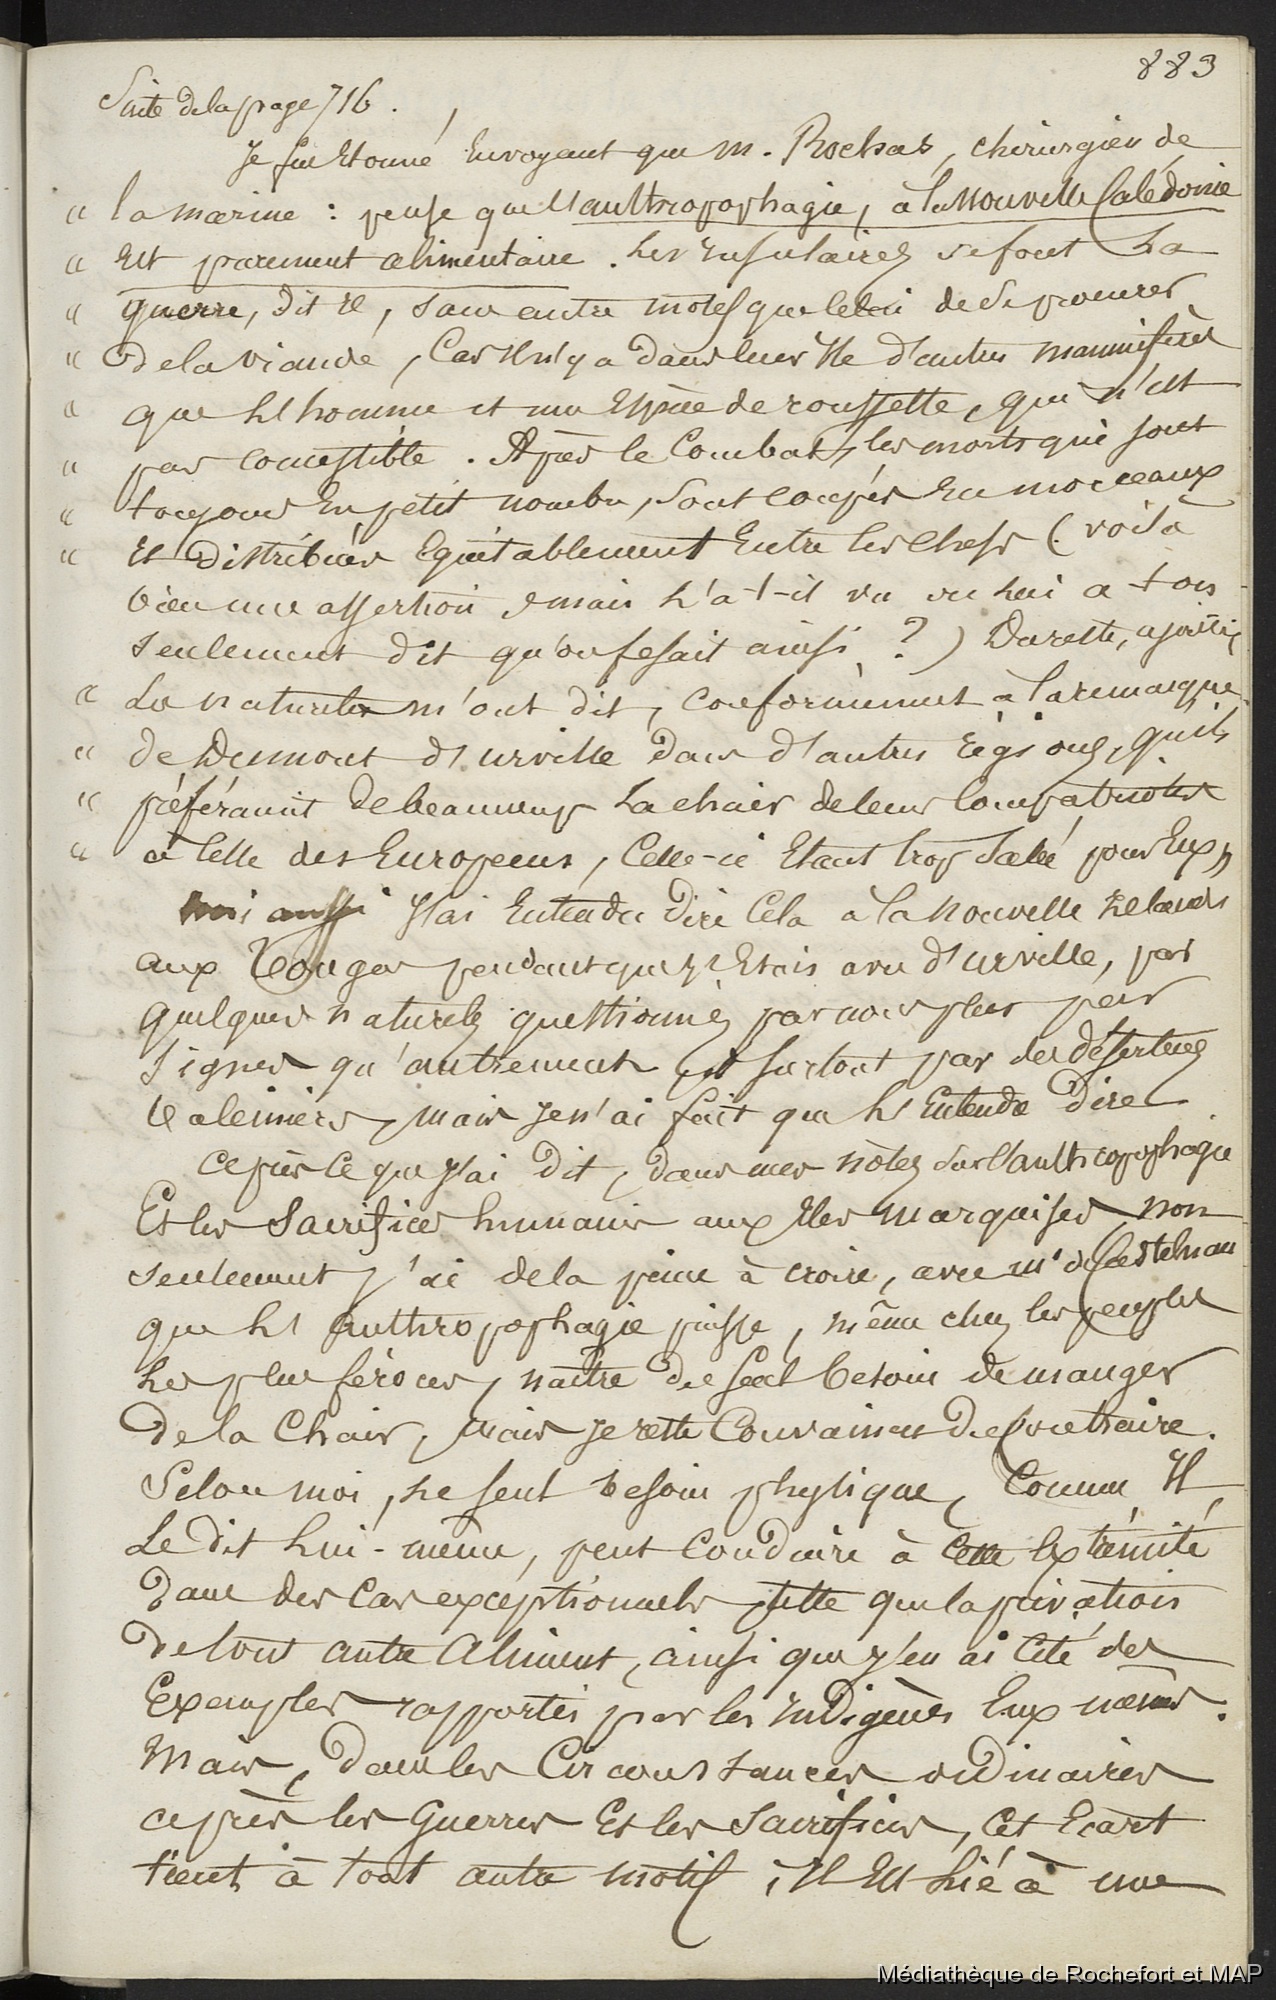 883
Suite de la page 716.
Je fus Etonné En voyant que m. Rochas, chirurgien de
" la marine : pense que l'anthropophagie, à la Nouvelle Calédonie
" Est purement alimentaire. Les Insulaires se font La
" guerre, dit il, sans autre motif que celui de se procurer
" de la viande, Car Il n'y a dans leur Ile d'autres mammifères
" que L'homme et une Espèce de roussette, qui n'est
" pas comestible. Après le Combat, les morts qui sont
" toujours En petit nombre, Sont coupés En morceaux
" Et distribués Equitablement Entre les chefs (voilà
bien une assertion mais l'a-t-il vu ou lui a t on
seulement dit qu'on fesait ainsi ?) Du reste, ajoute-il,
" Les naturels m'ont dit, conformément à la remarque
" de Dumont d'urville dans d'autres régions, qu'ils
" préféraient de beaucoup La chair de leurs Compatriotes
" à Celle des Européens, Celle-ci Etant trop Salée pour Eux "
moi aussi J'ai Entendu dire Cela à la nouvelle Zelande
aux Tongas pendant que J'Etais avec d'urville, par
quelques naturels questionnés par nous plus par
signes qu'autrement et surtout par des déserteurs
Baleiniers, mais Je n'ai fait que L'Entendre dire
après Ce que J'ai dit, dans mes notes sur l'anthropophagie
Et les Sacrifices humains aux Iles marquises, non
seulement J'ai de la peine à croire, avec mr de Castelnau
que L'anthropophagie puisse, même chez les peuples
Les plus féroces, naitre du seul besoin de manger
de la Chair, mais Je reste Convaincu du Contraire.
Selon moi, Le seul besoin physique, Comme Il
Le dit Lui-même, peut Conduire à Cette Extrémité
dans des Cas exceptionnels telle que la privation
de tout autre Aliment, ainsi que J'en ai Cité des
Exemples rapportés par les Indigènes Eux mêmes.
Mais, dans les Circonstances ordinaires
après les Guerres Et les Sacrifices, Cet Ecart
tient à tout autre motif ; Il Est Lié à une
Médiathèque de Rochefort et MAP